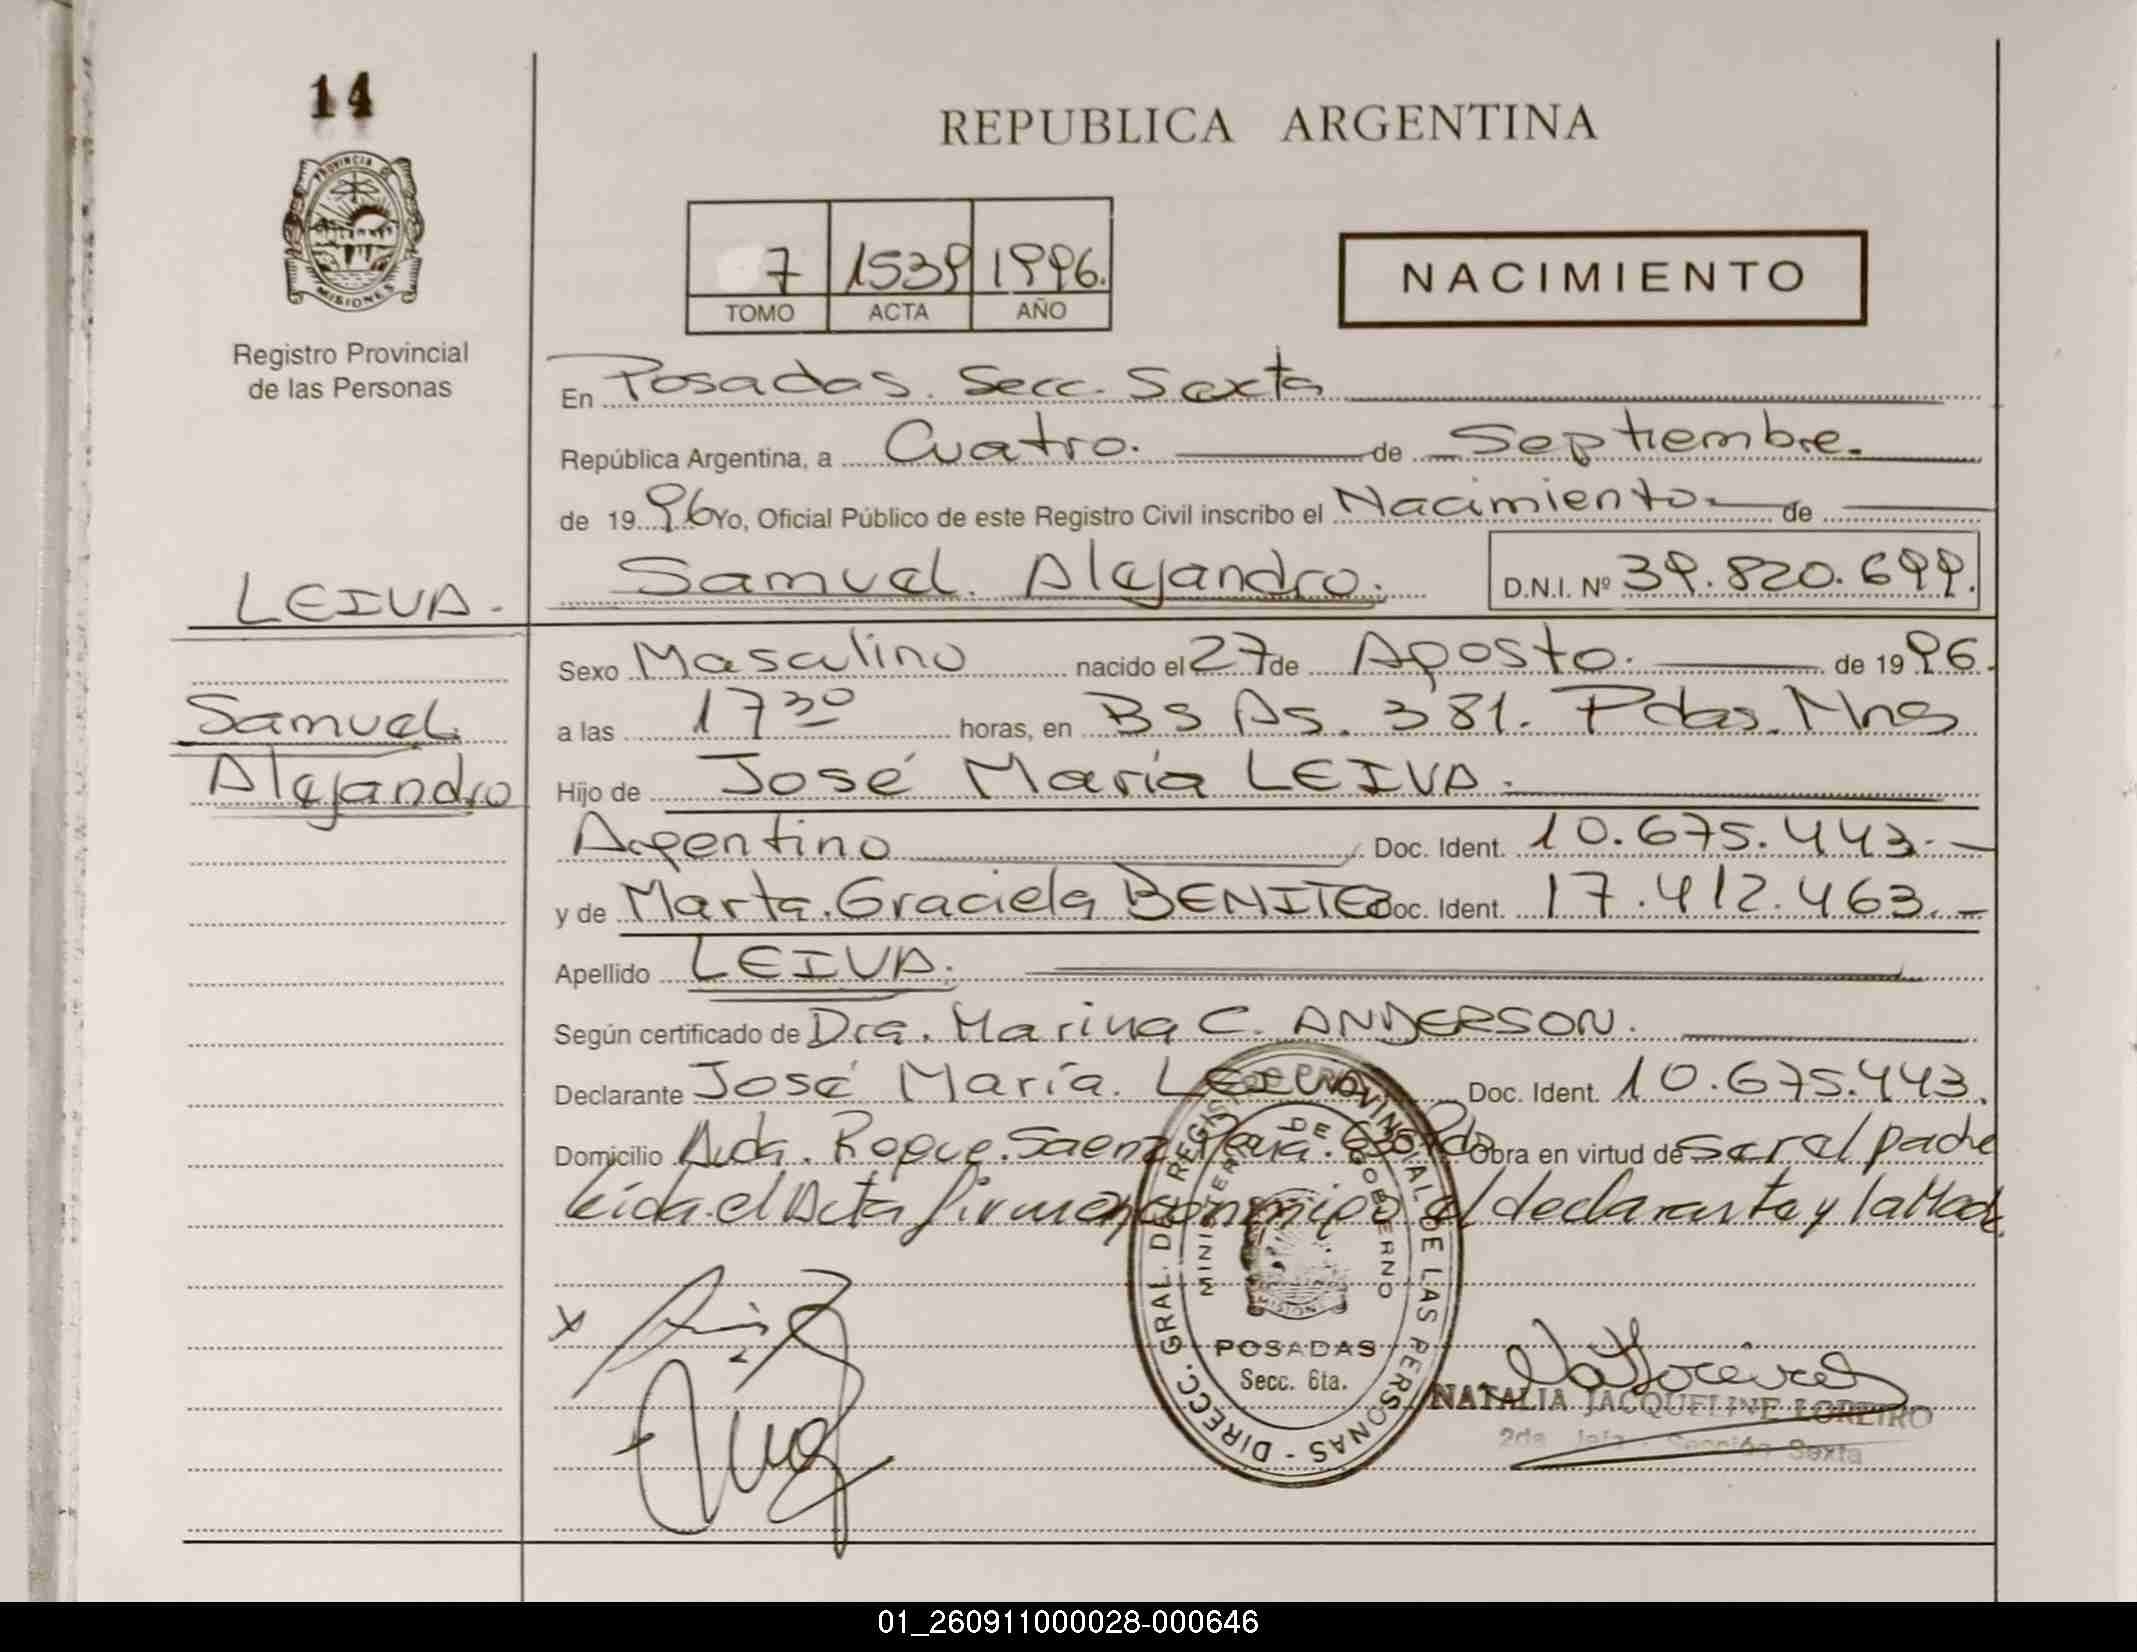 14
PROVINCIA DE
MISIONES
Registro Provincial
de las Personas
REPUBLICA ARGENTINA
7 1539 1996.
TOMO ACTA AÑO
NACIMIENTO
En Posadas. Secc. Sexta
República Argentina, a Cuatro. de Septiembre.
de 1996 Yo, Oficial Público de este Registro Civil inscribo el Nacimiento de
LEIVA. Samuel. Alejandro. D.N.I. Nº 39.820.699.
Sexo Masculino nacido el 27 de Agosto. de 1996.
Samuel a las 17 30 horas, en Bs As. 381. Pdas. Mnes
Alejandro Hijo de José María LEIVA.
Argentino Doc. Ident. 10.675.443.-
y de Marta. Graciela BENITEZ Doc. Ident. 17.412.463.-
Apellido LEIVA.
Según certificado de Dra. Marina C. ANDERSON.
Declarante José María. LEIVA Doc. Ident. 10.675.443.
Domicilio Avda. Roque. Saenz Peña. Pdas Obra en virtud de ser el padre
Leida el Acta firman conmigo el declarante y la Madre.
DIRECC. GRAL. DE REGISTRO PROVINCIAL DE LAS PERSONAS -
MINISTERIO DE GOBIERNO
MISIONES
POSADAS
Secc. 6ta.
NATALIA JACQUELINE LOREIRO
2da Jefa - Sección Sexta
01_260911000028-000646